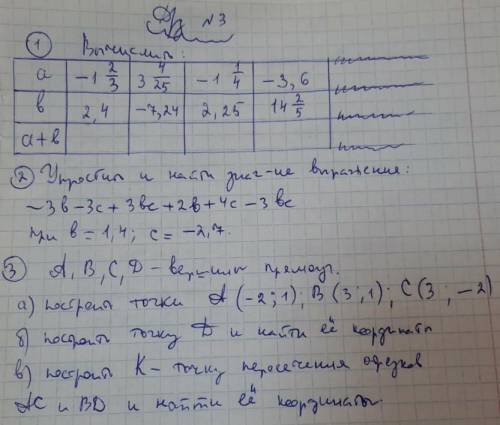 Др №3
① Вычислить:
a | -1 2/3 | 3 4/25 | -1 1/4 | -3,6
в | 2,4 | -7,24 | 2,25 | 14 2/5
a+в
② Упростить и найти знач-ие выражения:
-3в-3с+3вс+2в+4с-3вс
при в=1,4; с=-2,7.
③ А, В, С, D - вершины прямоуг.
а) построить точки А(-2;1); В(3;1); С(3;-2)
б) построить точку D и найти её координаты
в) построить К - точку пересечения отрезков
АС и BD и найти её координаты.